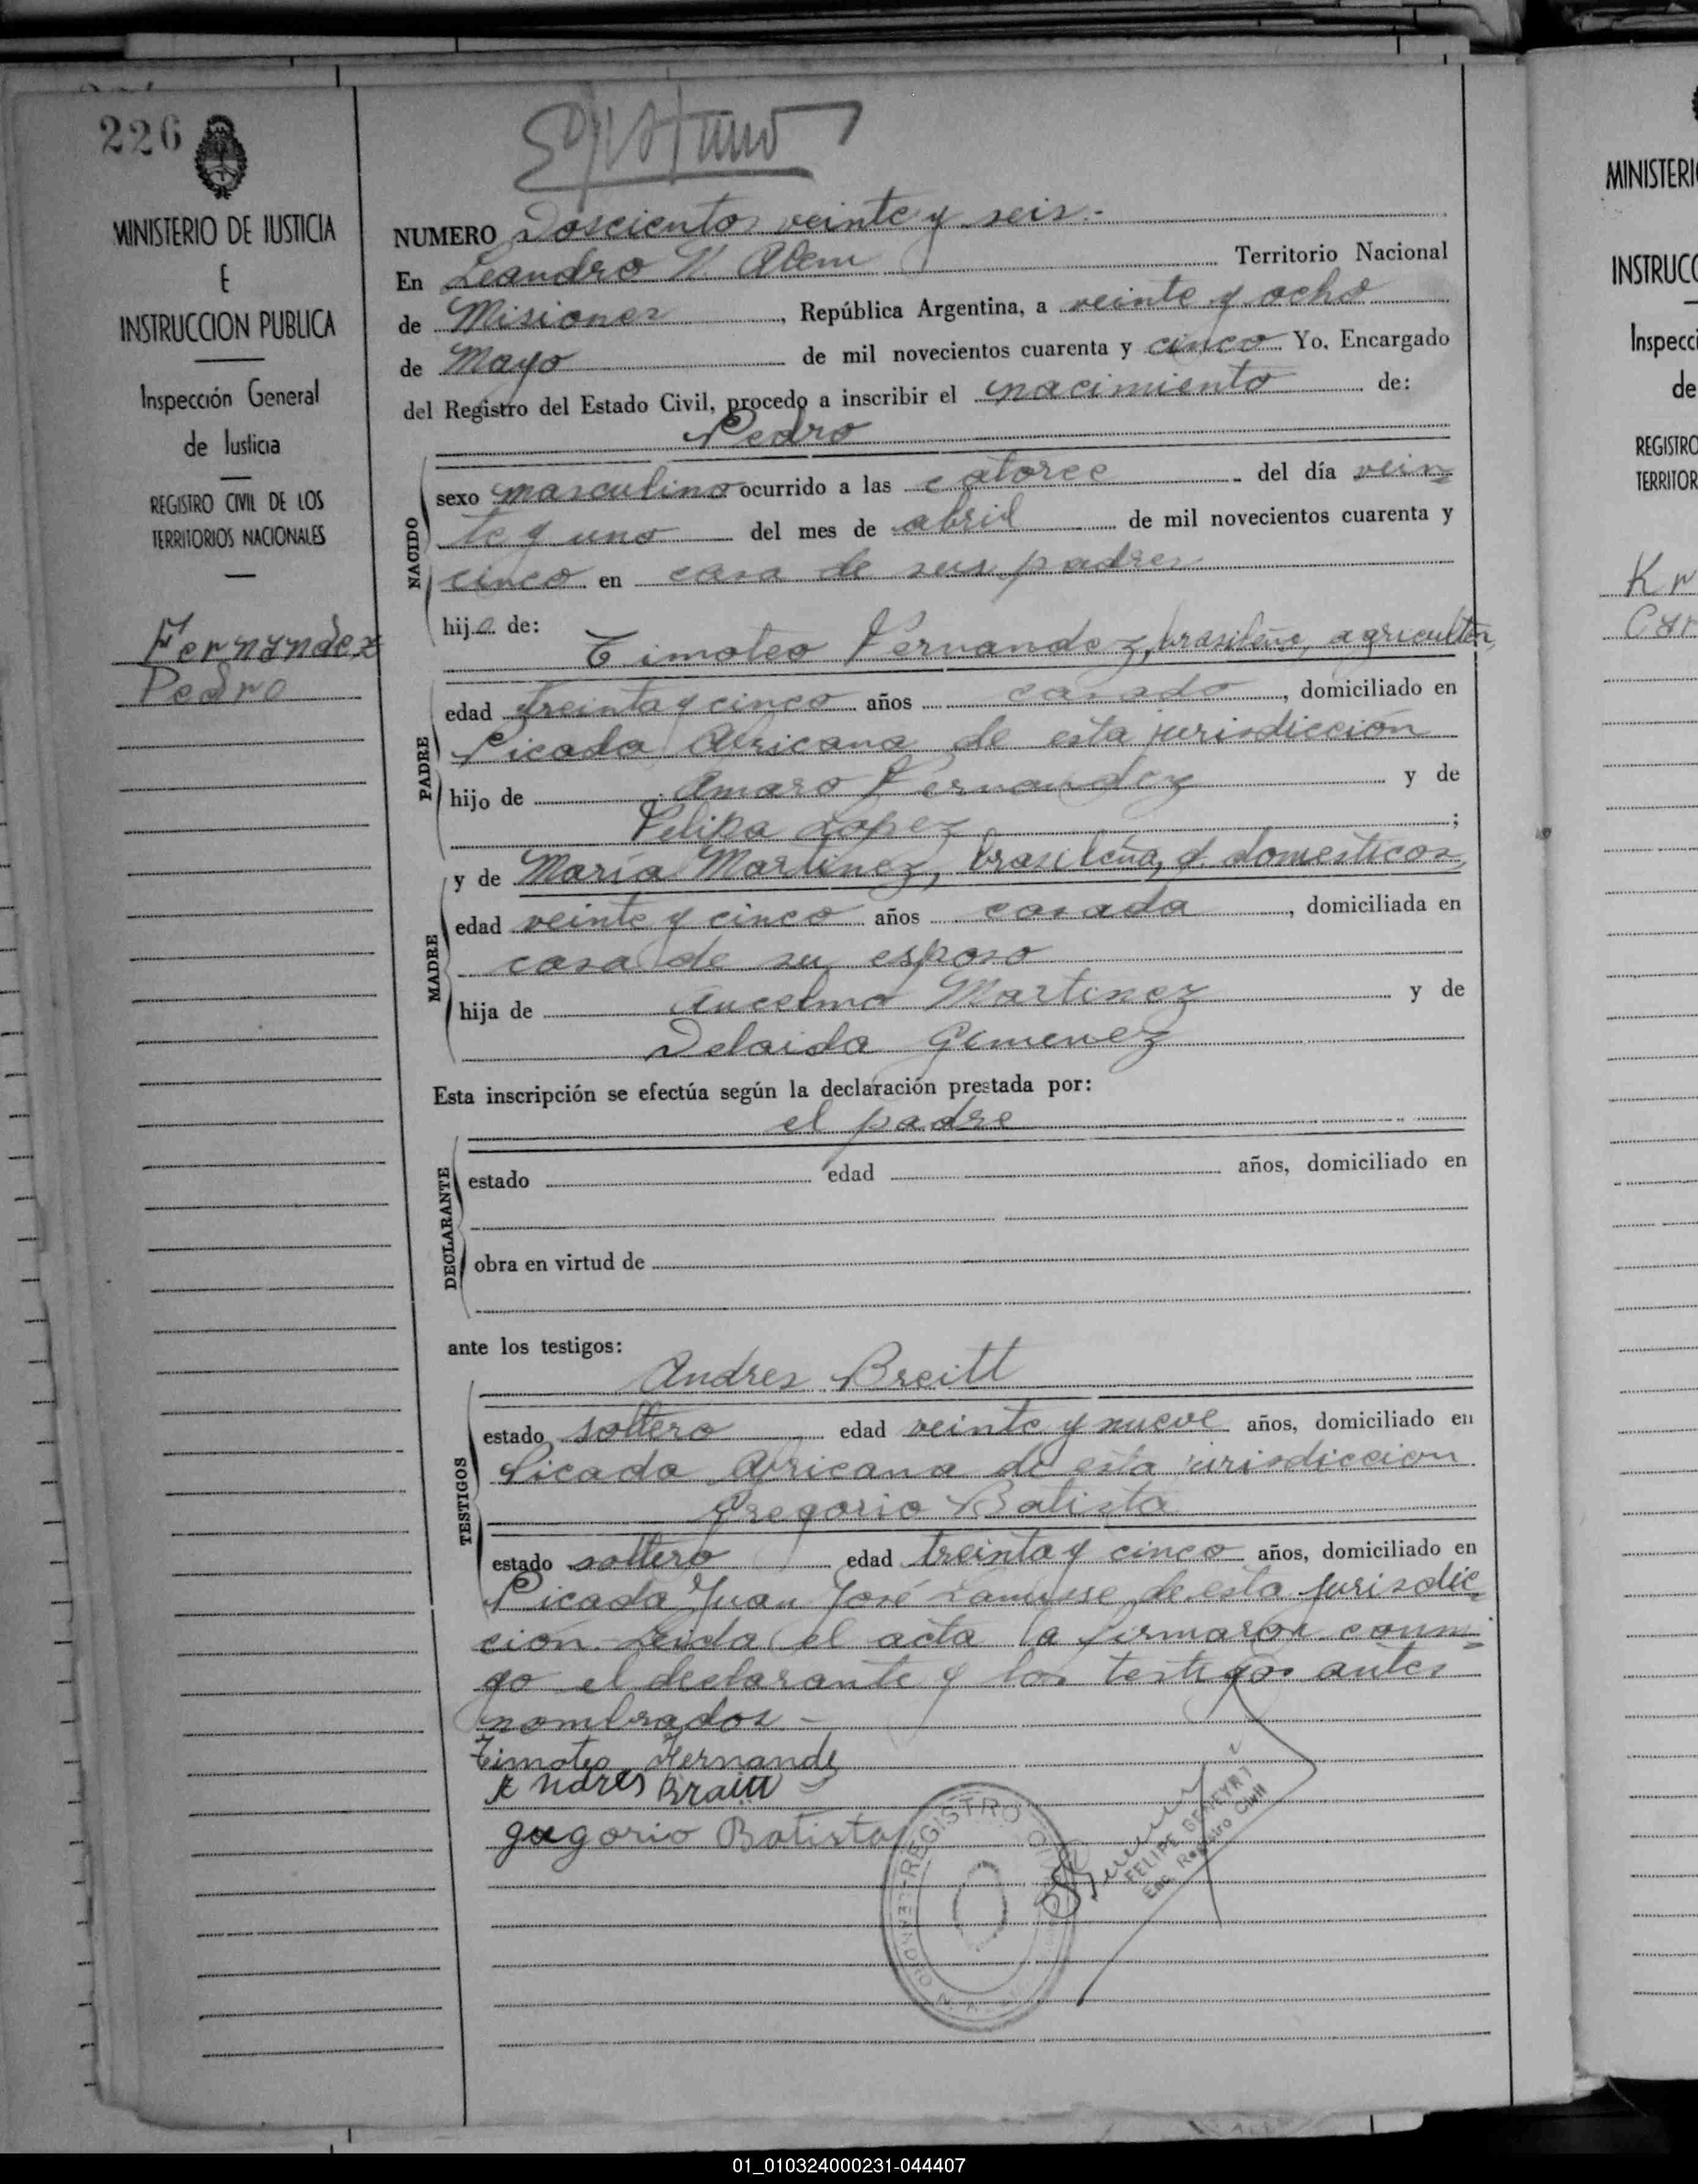 226
MINISTERIO DE JUSTICIA
E
INSTRUCCION PUBLICA
Inspección General
de Justicia
REGISTRO CIVIL DE LOS
TERRITORIOS NACIONALES
Fernandez
Pedro
NUMERO Doscientos veinte y seis.-
En Leandro N Alem Territorio Nacional
de Misiones, República Argentina, a veinte y ocho
de Mayo de mil novecientos cuarenta y cinco Yo, Encargado
del Registro del Estado Civil, procedo a inscribir el nacimiento de:
Pedro
NACIDO
sexo masculino ocurrido a las catorce del día vein
te y uno del mes de abril de mil novecientos cuarenta y
cinco en casa de sus padres
hijo de:
Timoteo Fernandez, brasileño, agricultor,
PADRE
edad treinta y cinco años casado, domiciliado en
Picada Africana de esta jurisdicción
hijo de Amaro Fernandez y de
Felipa Lopez;
y de Maria Martinez, brasileña, q. domesticos,
MADRE
edad veinte y cinco años casada, domiciliada en
casa de su esposo
hija de Ancelmo Martinez y de
Delaida Gimenez
Esta inscripción se efectúa según la declaración prestada por:
el padre
DECLARANTE
estado edad años, domiciliado en
obra en virtud de
ante los testigos:
Andres Breitt
TESTIGOS
estado soltero edad veinte y nueve años, domiciliado en
Picada Africana de esta jurisdiccion
Gregorio Batista
estado soltero edad treinta y cinco años, domiciliado en
Picada Juan José Lanusse de esta jurisdic
cion. Leida el acta la firmaron conmi
go el declarante y los testigos antes
nombrados-
Timoteo Fernande
Andres
gregorio Batista
REGISTRO CIVIL
LEANDRO N.
FELIPE
Enc. Registro Civil
MINISTERI
INSTRUCC
Inspecc
de
REGISTRO
TERRITOR
Kr
01_010324000231-044407